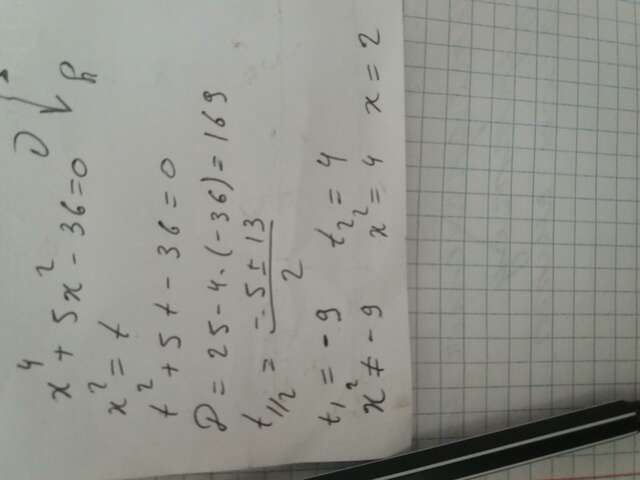 x⁴ + 5x² - 36 = 0
x² = t
t² + 5t - 36 = 0
D = 25 - 4 · (-36) = 169
t₁/₂ = -5 ± 13 / 2
t₁ = -9 t₂ = 4
x² ≠ -9 x² = 4 x = 2